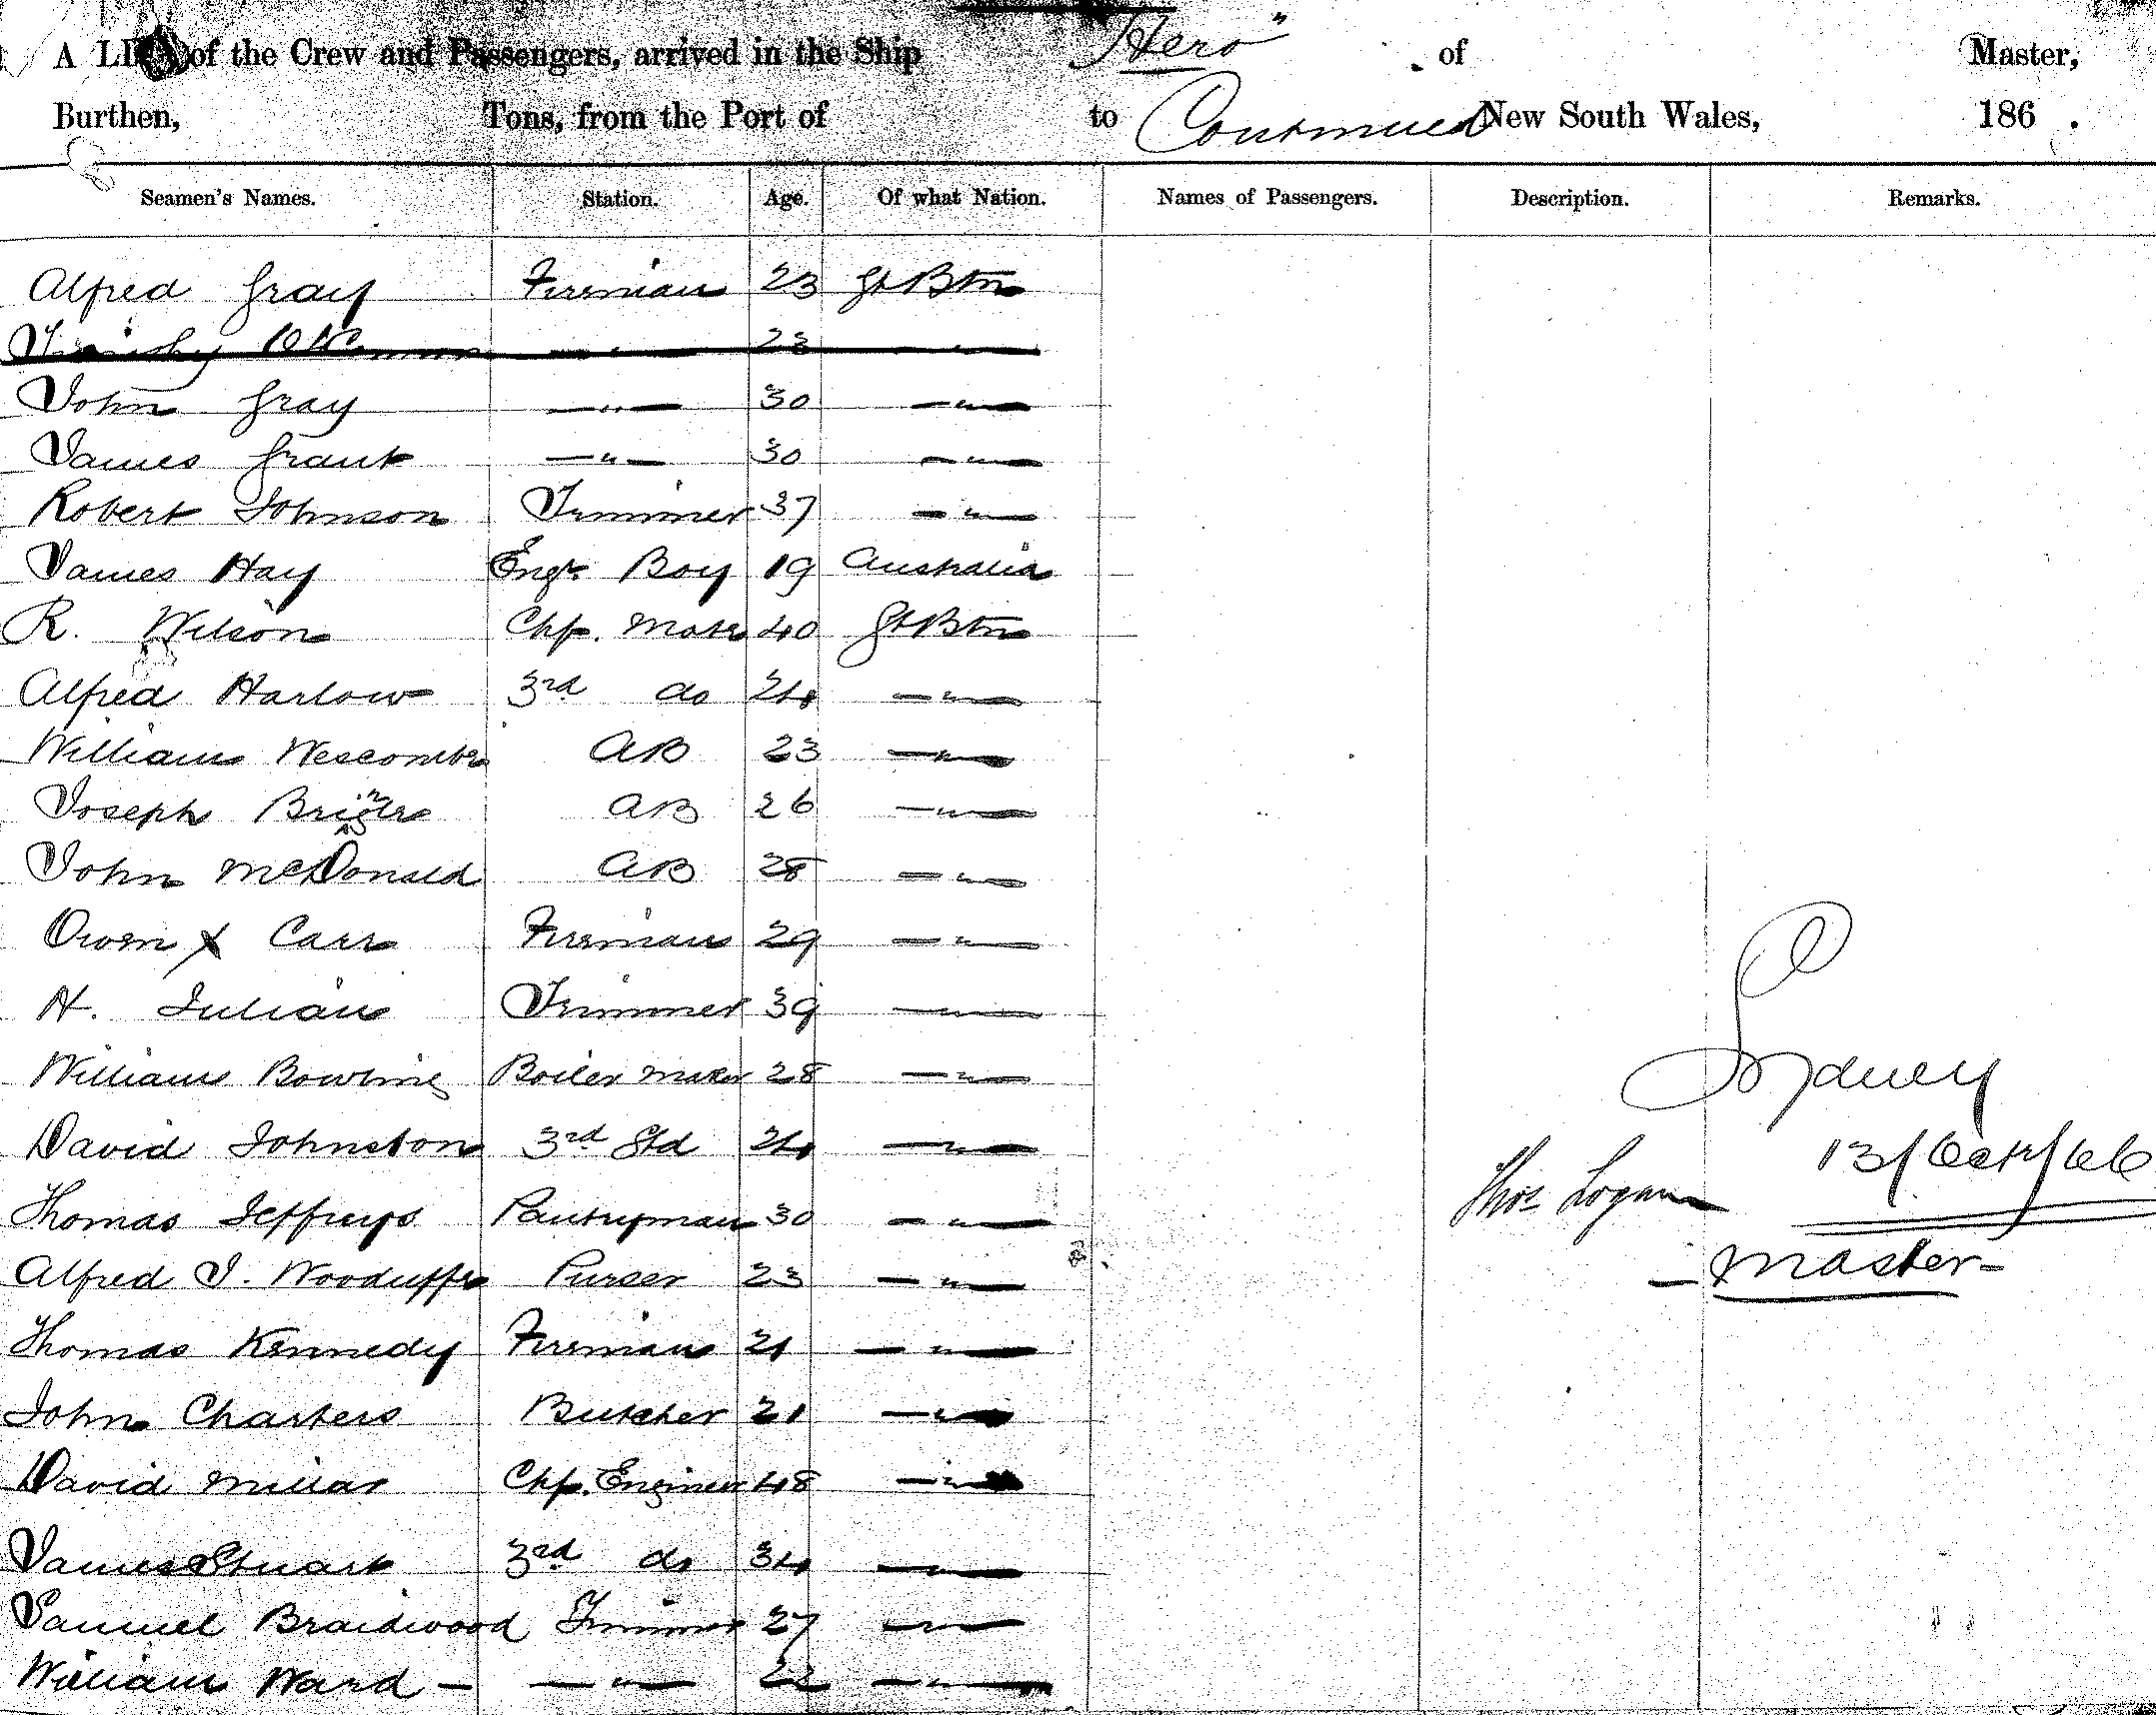 A LIST of the Crew and Passengers, arrived in the Ship "Hero" of Master,
Burthen, Tons, from the Port of to Continued New South Wales, 186 .
Seamen's Names. Station. Age. Of what Nation. Names of Passengers. Description. Remarks.
Alfred Gray Fireman 23 Gt Btn
23 — " —
John Gray — " — 30 — " —
James Grant — " — 30 — " —
Robert Johnson Trimmer 37 — " —
James Hay Engr. Boy 19 Australia
R. Wilson Chf. Mate 40 Gt Btn
Alfred Harlow 3rd do 24 — " —
William Wescombe AB 23 — " —
Joseph AB 26 — " —
John McDonald AB 28 — " —
Owen x Carr Fireman 29 — " —
H. Julian Trimmer 39 — " —
William Bowling Boiler maker 28 — " —
David Johnston 3rd Std 24 — " —
Thomas Jeffreys Pantryman 30 — " —
Alfred J. Purser 23 — " —
Thomas Kennedy Fireman 21 — " —
John Charters Butcher 21 — " —
David Millar Chf. Engineer 48 — " —
James Stuart 3rd do 34 — " —
Samuel Braidwood Trimmer 27 — " —
William Ward — — " — 22 — " —
Sydney
13/Octr/66
Thos Logan
— Master —